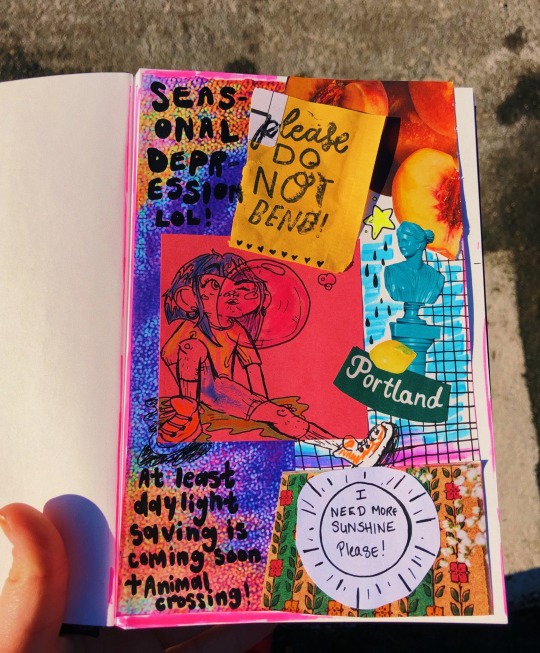 SEAS-
ONAL
DEPR-
ESSION
LOL!
please
DO
NOT
BEND!
Portland
At least
daylight
saving is
coming soon
+ Animal
crossing!
I
NEED MORE
SUNSHINE
Please!